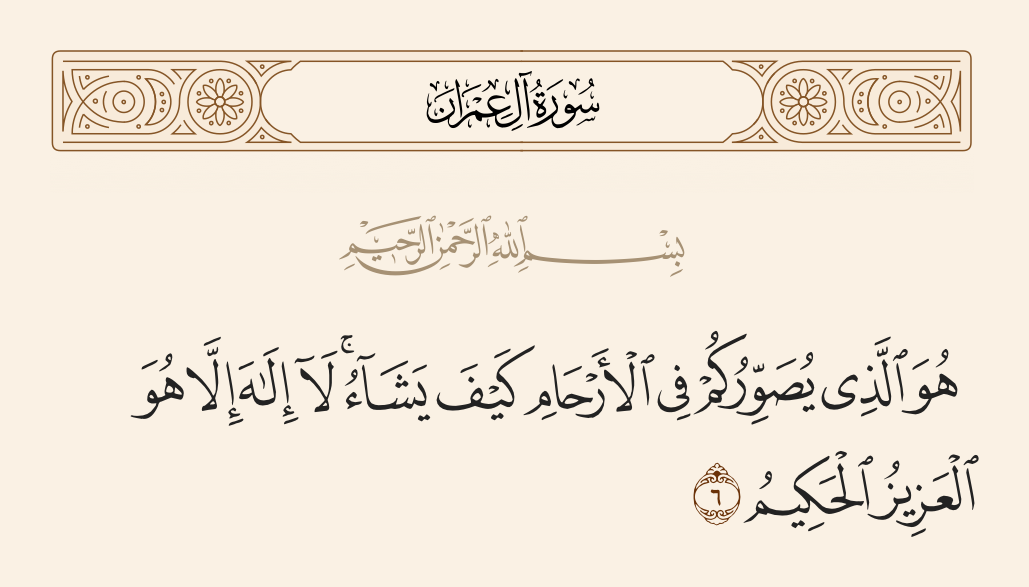 سُورَةُ آلِ عِمْرَانَ
بِسْمِ ٱللَّهِ ٱلرَّحْمَٰنِ ٱلرَّحِيمِ
هُوَ ٱلَّذِى يُصَوِّرُكُمْ فِى ٱلْأَرْحَامِ كَيْفَ يَشَآءُ ۚ لَآ إِلَٰهَ إِلَّا هُوَ
ٱلْعَزِيزُ ٱلْحَكِيمُ ٦